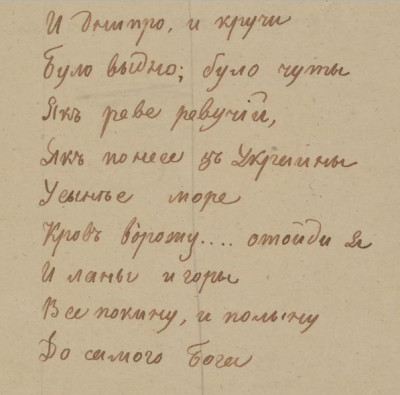 И Днипро, и кручи
Було выдно; було чуты
Якъ реве ревучій,
Якъ понесе зъ Украины
У сынье море
Кровъ ворожу.... отойди я
И ланы и горы
Все покину, и полыну
До самого Бога